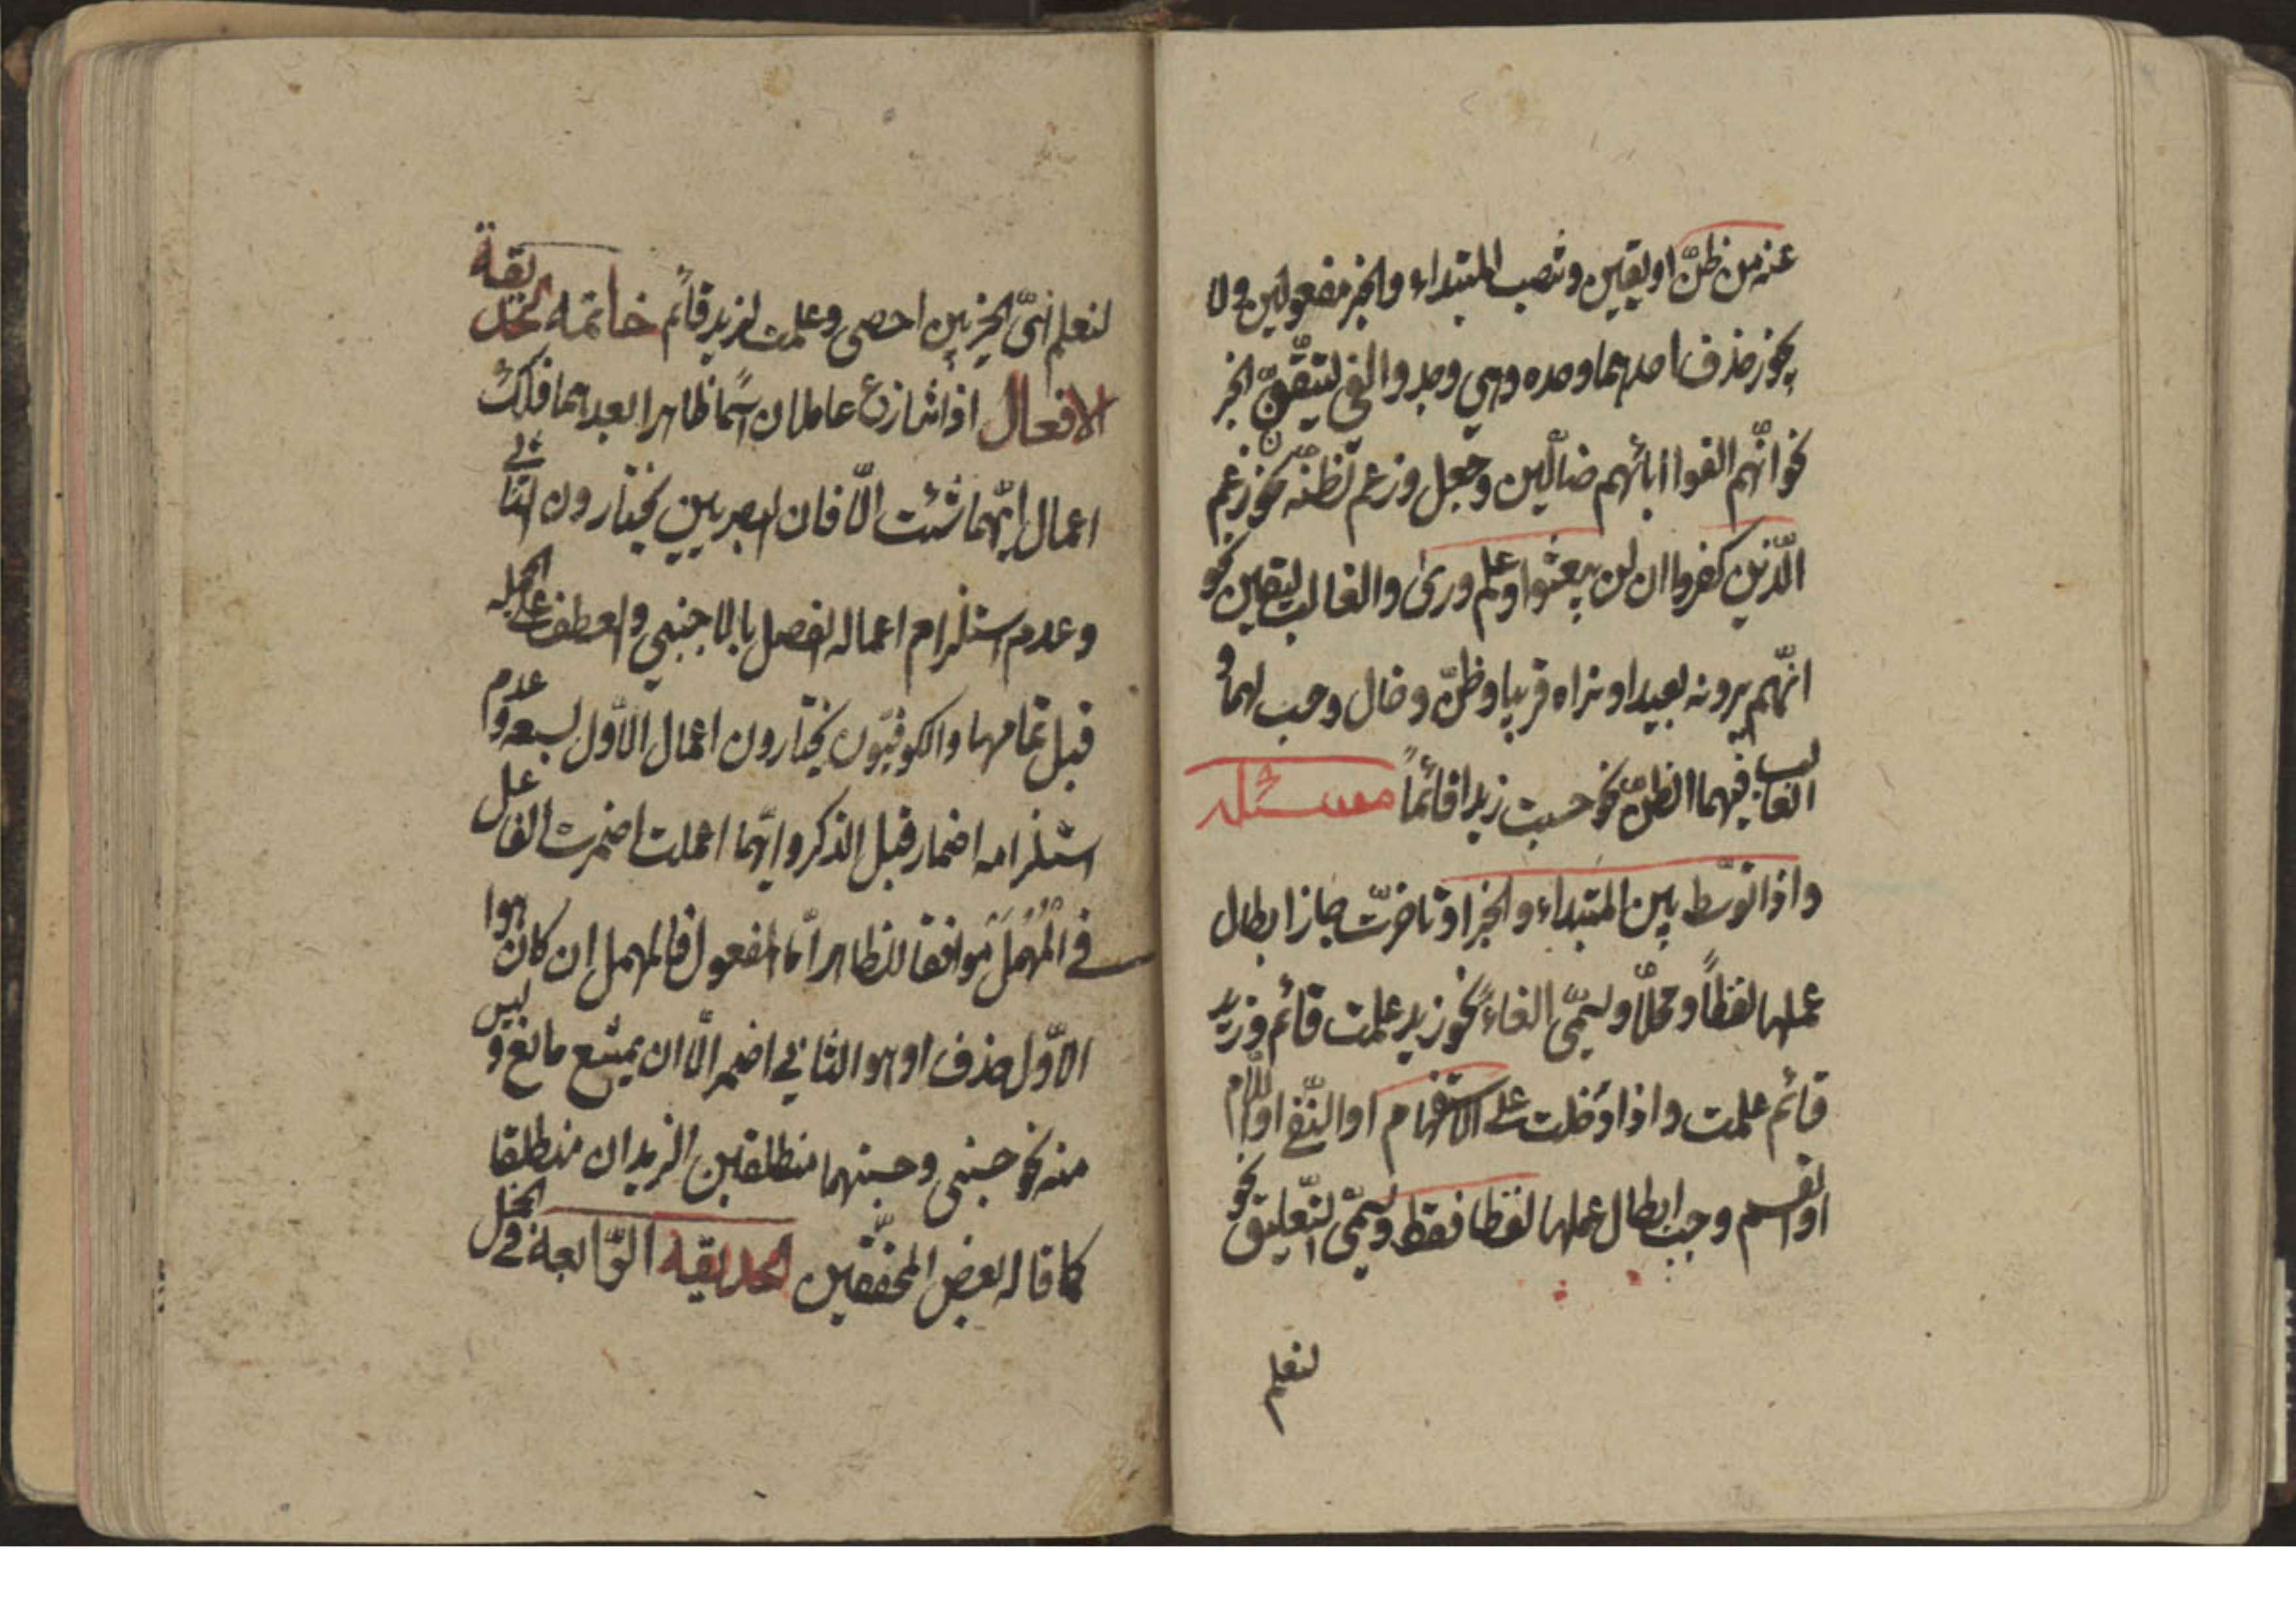 عنه من ظنّ او يقين وتنصب المبتداء والخبر مفعولين ولا
يجوز حذف احدهما وحده وهي وجد والفى لتيقّن الخبر
نحو انّهم الفوا ابائهم ضالّين وجعل وزعم لظنّه نحو زعم
الّذين كفروا ان لن يبعثوا وعلم ورى والغالب ليقين نحو
انّهم يرونه بعيدا ونراه قريبا وظنّ وخال وحسب لهما و
الغالب فيهما الظنّ نحو حسبت زيدا قائماً مسئله
واذا توسّط بين المبتداء والخبر او تاخّرت جاز ابطال
عملها لفظاً ومحلّا ويسمّى الغاء نحو زيد علمت قائم وزيد
قائم علمت واذا دخلت على الاستفهام او النّفى او اللّام
او القسم وجب ابطال عملها لفظا فقط ويسمّى التّعليق نحو
لنعلم
لنعلم اىّ الحزبين احصى وعلمت لزيد قائم خاتمه لحديقة
الافعال اذا تنازع عاملان اسمًا ظاهرا بعدهما فلك
اعمال ايّهما شئت الّا فان البصريين يختارون الثانى
وعدم استلزام اعماله الفصل بالاجنبي والعطف على الجمله
قبل تمامها والكوفيّون يختارون اعمال الاوّل لسبقه وعدم
استلزامه اضمار قبل الذكر وايّهما اعملت اضمرت الفاعل
فى المُهمَل موافقا للظاهر امّا المفعول فالمهمل ان كان هو ا
الاوّل حذف او هو الثاني اضمر الّا ان يمنع مانع وليس
منه نحو حسبنى وحسبتهما منطلقين الزيدان منطلقا
كما قاله بعض المحقّقين الحديقة الرّابعة فى الجمل